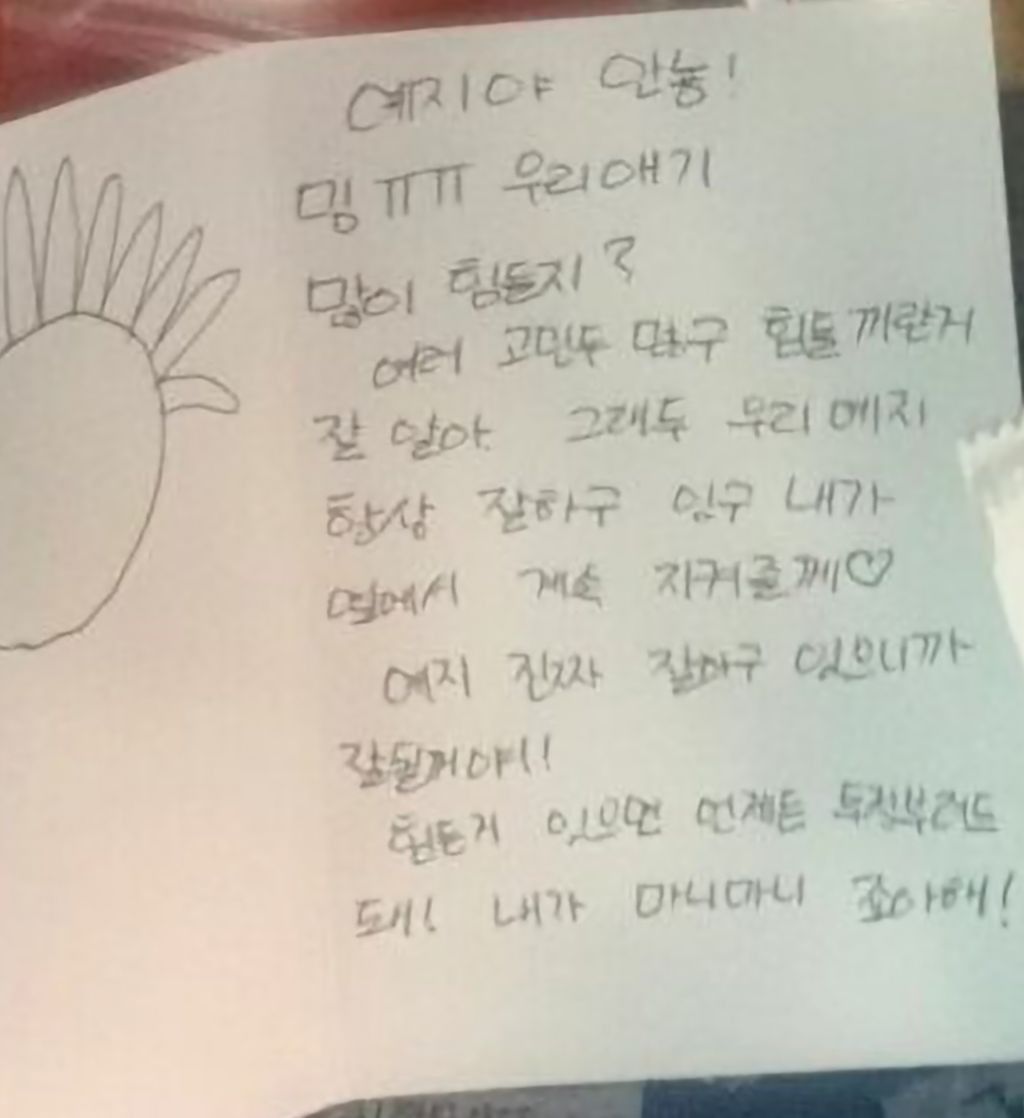 예지야 안뇽!
밍 ㅠㅠ 우리애기
많이 힘든지?
여러 고민두 많구 힘들꺼란거
잘 알아. 그래두 우리 예지
항상 잘하구 있구 내가
옆에서 계속 지켜줄께♡
예지 진짜 잘하구 있으니까
잘될꺼야!!
힘든거 있으면 언제든 투정부려도
돼! 내가 마니마니 죠아해!